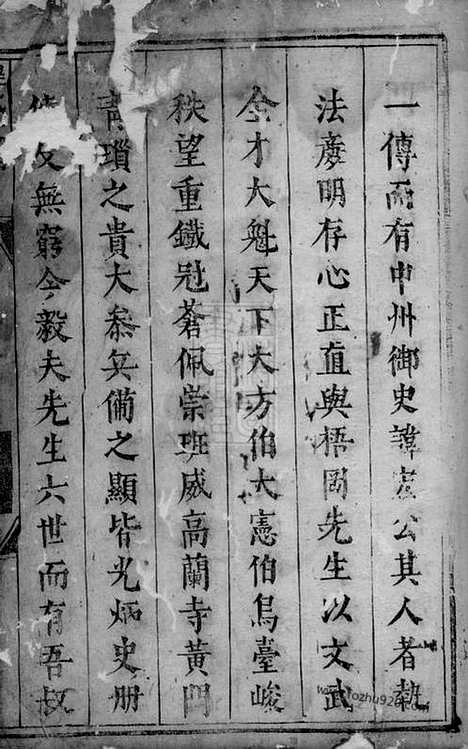 一傳而有中州御史諱憲公其人者執
法廉明存心正直與梧岡先生以文武
全才大魁天下大方伯大憲伯烏臺峻
秩望重鐵冠蒼佩崇班威高蘭寺黃門
青瑣之貴大叅兵備之顯皆光炳史册
文無窮今毅夫先生六世而有吾叔